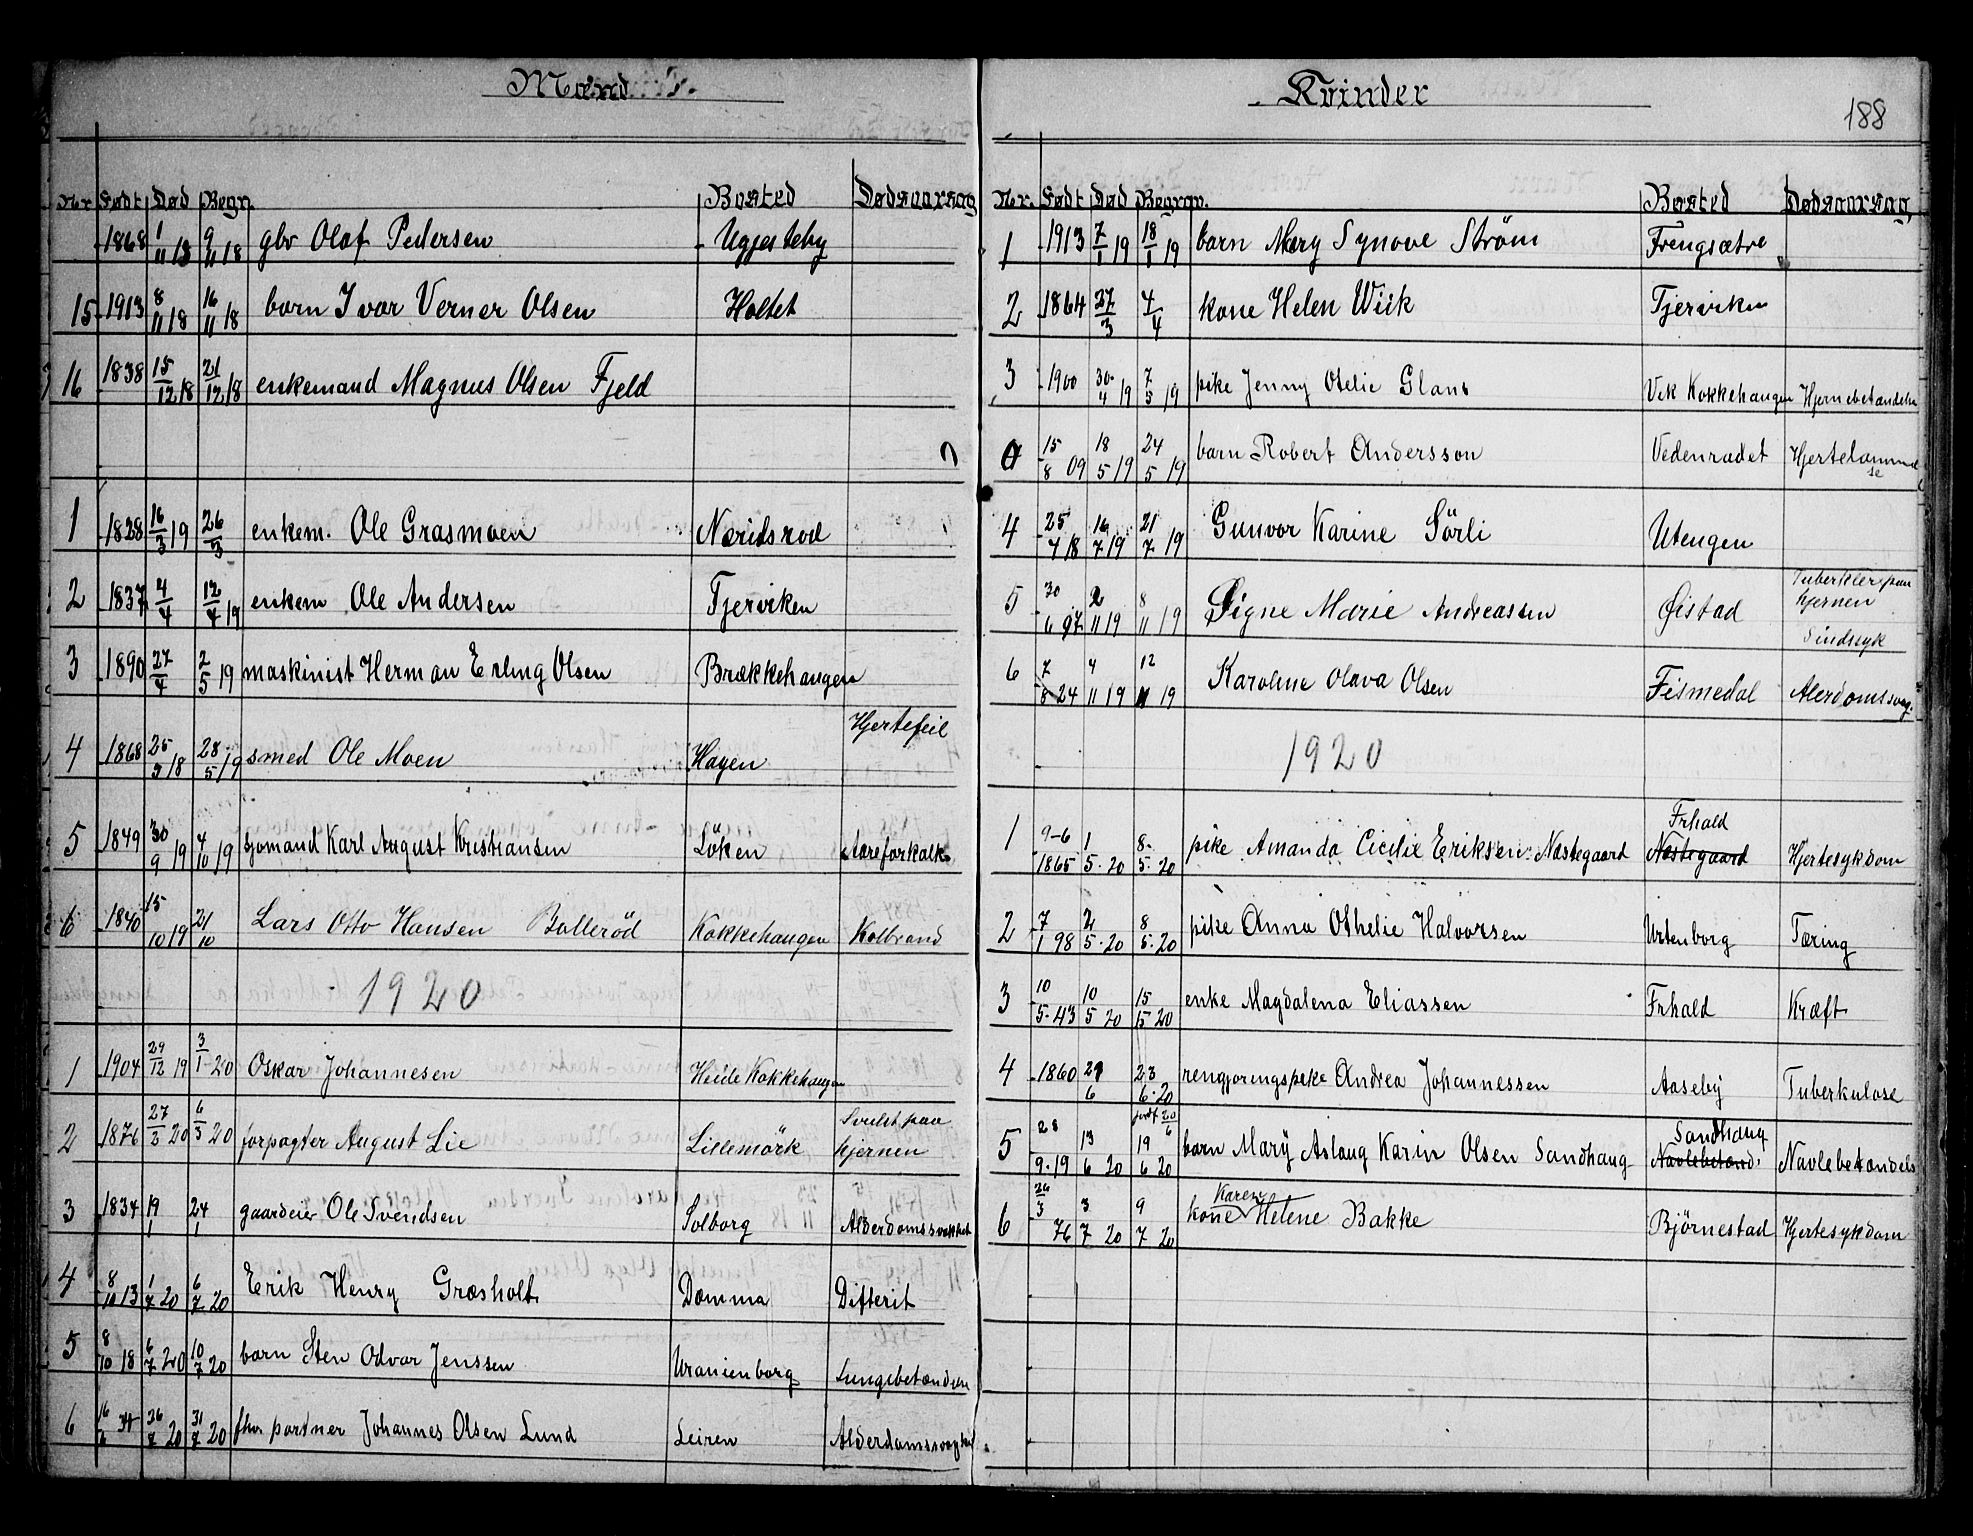 Mænd
Nr Født Død Begr. Bosted Dødsaarsag
1868 1/11 18 9/11 18 gbr Olaf Pedersen Uggesteby
15 1913 8/11 18 16/11 18 barn Ivar Verner Olsen Holtet
16 1838 15/12 18 21/12 18 enkemand Magnus Olsen Fjeld
1 1828 16/3 19 26/3 enkem. Ole Grasmoen Neridsrod
2 1837 4/4 12/4 19 enkem Ole Andersen Tjerviken
3 1890 27/4 2/5 19 maskinist Herman Erling Olsen Brækkehaugen
4 1868 25/5 18 28/5 19 smed Ole Moen Hagen Hjertefeil
5 1849 30/9 19 4/10 19 sjømand Karl August Kristiansen Löken Aareforkalk.
6 1840 15/10 19 21/10 Lars Otto Hansen Bolleröd Kokkehaugen Kolbrand
1920
1 1904 29/12 19 3/1 20 Oskar Johannesen Heide Kokkehaugen
2 1876 27/3 20 6/3 20 forpagter August Lie Lillemörk Svulst paa hjernen
3 1834 19/1 24/1 gaardeier Ole Svendsen Solborg Alderdomssvakhet
4 8/10 13 1/7 20 6/7 20 Erik Henry Græsholt Domma Difterit
5 8/10 18 6/7 20 10/7 20 barn Sten Odvar Jenssen Uranienborg Lungebetændelse
6 16/6 34 26/7 20 31/7 20 fhv partner Johannes Olsen Lund Leiren Alderdomssvaghed
Kvinder
188
Nr. Født Død Begrav. Bosted Dødsaarsag,
1 1913 7/1 19 18/1 19 barn Mary Synove Strøm Frengsætre
2 1864 27/3 4/4 kone Helen Wiik Tjerviken
3 1900 30/4 19 7/5 19 pike Jenny Otelie Glans Vek Kokkehaugen Hjernebetændelse
0 15/8 09 18/5 19 24/5 19 barn Robert Andersson Vedenradet Hjertelammelse
4 25/4 18 16/7 19 21/7 19 Gunvor Karine Sörli Utengen
5 30/6 97 2/11 19 8/11 19 Signe Marie Andreassen Øistad Tuberkler paa hjernen
6 7/8 24 4/11 19 12/11 19 Karoline Olava Olsen Fismedal Sindsyk Alerdomssvag.
1920
1 9-6 1865 1/5-20 8/5-20 pike Amanda Cicilie Eriksen Næstegaard Frhald Næstegaard Hjertesykdom
2 7/1 98 2/5-20 8/5-20 pike Anna Othelie Halvorsen Urtenborg Tæring
3 10/5-43 10/5 20 15/5 20 enke Magdalena Eliassen Frhald Kræft
4 1860 21/6 23/6-20 rengjøringspike Andrea Johannessen Aaseby Tuberkulose
5 28/9-19 13/6 20 19/6 20 jordf 20/6 barn Marÿ Aslaug Karin Olsen Sandhaug Sandhaug Navlebetænd. Navlebetændels
6 26/3 76 3/7 20 9/7 20 kone Karen Helene Bakke Björnestad Hjertesykdom